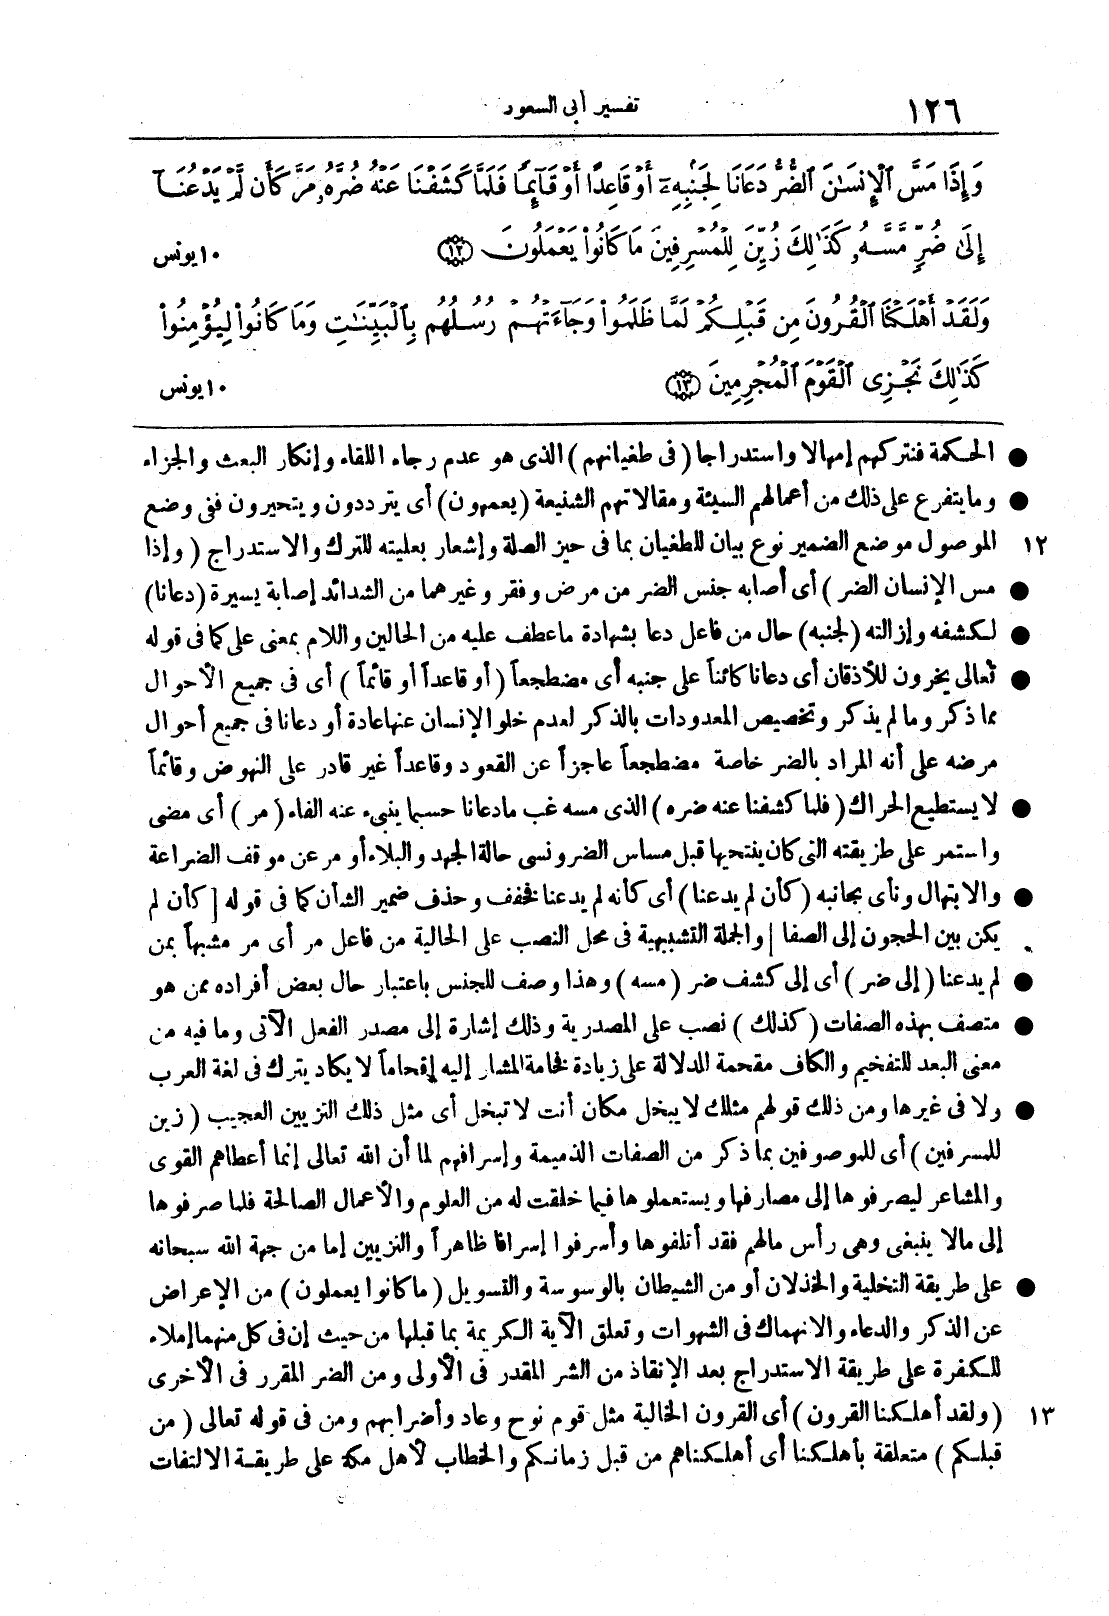 ١٢٦
تفسير أبى السعود
وَإِذَا مَسَّ ٱلْإِنسَـٰنَ ٱلضُّرُّ دَعَانَا لِجَنۢبِهِۦٓ أَوْ قَاعِدًا أَوْ قَآئِمًا فَلَمَّا كَشَفْنَا عَنْهُ ضُرَّهُۥ مَرَّ كَأَن لَّمْ يَدْعُنَآ
إِلَىٰ ضُرٍّ مَّسَّهُۥ كَذَٰلِكَ زُيِّنَ لِلْمُسْرِفِينَ مَا كَانُوا۟ يَعْمَلُونَ ﴿١٢﴾ ١٠ يونس
وَلَقَدْ أَهْلَكْنَا ٱلْقُرُونَ مِن قَبْلِكُمْ لَمَّا ظَلَمُوا۟ وَجَآءَتْهُمْ رُسُلُهُم بِٱلْبَيِّنَـٰتِ وَمَا كَانُوا۟ لِيُؤْمِنُوا۟
كَذَٰلِكَ نَجْزِى ٱلْقَوْمَ ٱلْمُجْرِمِينَ ﴿١٣﴾ ١٠ يونس
● الحكمة فنتركهم إمهالا واستدراجا (فى طغيانهم) الذى هو عدم رجاء اللقاء وإنكار البعث والجزاء
● وما يتفرع على ذلك من أعمالهم السيئة ومقالاتهم الشنيعة (يعمهون) أى يترددون ويتحيرون ففى وضع
١٢ الموصول موضع الضمير نوع بيان للطغيان بما فى حيز الصلة وإشعار بعليته للترك والاستدراج (وإذا
● مس الإنسان الضر) أى أصابه جنس الضر من مرض وفقر وغيرهما من الشدائد إصابة يسيرة (دعانا)
● لكشفه وإزالته (لجنبه) حال من فاعل دعا بشهادة ما عطف عليه من الحالين واللام بمعنى على كما فى قوله
● تعالى يخرون للأذقان أى دعانا كائناً على جنبه أى مضطجعاً (أو قاعداً أو قائماً) أى فى جميع الأحوال
مما ذكر وما لم يذكر وتخصيص المعدودات بالذكر لعدم خلو الإنسان عنها عادة أو دعانا فى جميع أحوال
مرضه على أنه المراد بالضر خاصة مضطجعاً عاجزاً عن القعود وقاعداً غير قادر على النهوض وقائماً
● لا يستطيع الحراك (فلما كشفنا عنه ضره) الذى مسه غب ما دعانا حسبما ينبىء عنه الفاء (مر) أى مضى
واستمر على طريقته التى كان ينتحيها قبل مساس الضر ونسى حالة الجهد والبلاء أو مر عن موقف الضراعة
● والابتهال ونأى بجانبه (كأن لم يدعنا) أى كأنه لم يدعنا فخفف وحذف ضمير الشأن كما فى قوله [كأن لم
يكن بين الحجون إلى الصفا] والجملة التشبيهية فى محل النصب على الحالية من فاعل مر أى مر مشبهاً بمن
● لم يدعنا (إلى ضر) أى إلى كشف ضر (مسه) وهذا وصف للجنس باعتبار حال بعض أفراده ممن هو
● متصف بهذه الصفات (كذلك) نصب على المصدرية وذلك إشارة إلى مصدر الفعل الآتى وما فيه من
معنى البعد للتفخيم والكاف مقحمة للدلالة على زيادة فخامة المشار إليه إقحاماً لا يكاد يترك فى لغة العرب
● ولا فى غيرها ومن ذلك قولهم مثلك لا يبخل مكان أنت لا تبخل أى مثل ذلك التزيين العجيب (زين
للمسرفين) أى للموصوفين بما ذكر من الصفات الذميمة وإسرافهم لما أن الله تعالى إنما أعطاهم القوى
والمشاعر ليصرفوها إلى مصارفها ويستعملوها فيما خلقت له من العلوم والأعمال الصالحة فلما صرفوها
إلى مالا ينبغى وهى رأس مالهم فقد أتلفوها وأسرفوا إسرافا ظاهراً والتزيين إما من جهة الله سبحانه
● على طريقة التخلية والخذلان أو من الشيطان بالوسوسة والتسويل (ما كانوا يعملون) من الإعراض
عن الذكر والدعاء والانهماك فى الشهوات وتعلق الآية الكريمة بما قبلها من حيث إن فى كل منهما إملاء
للكفرة على طريقة الاستدراج بعد الإنقاذ من الشر المقدر فى الأولى ومن الضر المقرر فى الأخرى
١٣ (ولقد أهلكنا القرون) أى القرون الخالية مثل قوم نوح وعاد وأضرابهم ومن فى قوله تعالى (من
قبلكم) متعلقة بأهلكنا أى أهلكناهم من قبل زمانكم والخطاب لأهل مكة على طريقة الالتفات